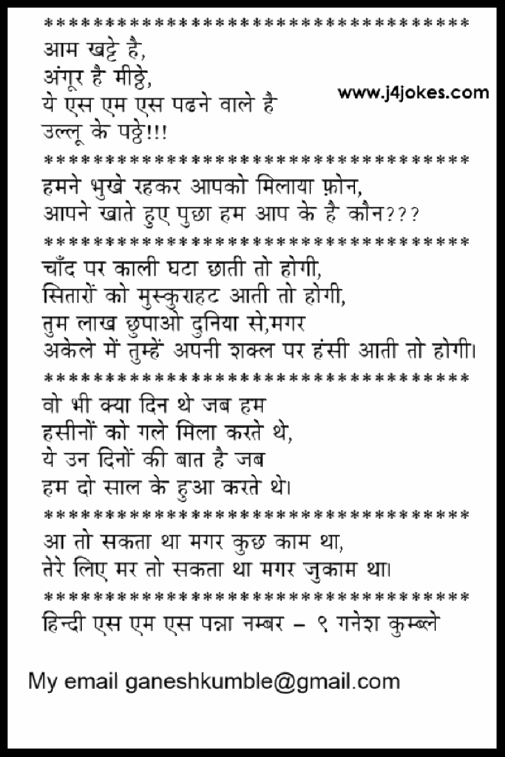 **********************************
आम खट्टे है,
अंगूर है मीठ्ठे,
www.j4jokes.com
ये एस एम एस पढने वाले है
उल्लू के पठ्ठे!!!
**********************************
हमने भुखे रहकर आपको मिलाया फ़ोन,
आपने खाते हुए पुछा हम आप के है कौन???
**********************************
चाँद पर काली घटा छाती तो होगी,
सितारों को मुस्कुराहट आती तो होगी,
तुम लाख छुपाओ दुनिया से,मगर
अकेले में तुम्हें अपनी शक्ल पर हंसी आती तो होगी।
**********************************
वो भी क्या दिन थे जब हम
हसीनों को गले मिला करते थे,
ये उन दिनों की बात है जब
हम दो साल के हुआ करते थे।
**********************************
आ तो सकता था मगर कुछ काम था,
तेरे लिए मर तो सकता था मगर जुकाम था।
**********************************
हिन्दी एस एम एस पन्ना नम्बर – ९ गनेश कुम्ब्ले
My email ganeshkumble@gmail.com